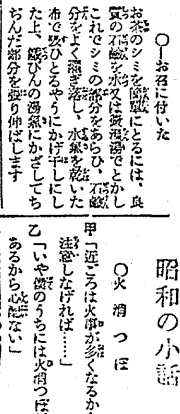 〇―お召に付いた
お茶のシミを簡單にとるには、良
質の石鹼を水又は微温湯でとかし
これでシミの部分をあらひ、石鹼
分をよく濯ぎ落し、水氣を乾いた
布で吸ひとるやうにかげ干しにし
た上、鐵びんの湯氣にかざしてち
ぢんだ部分を張り伸ばします
昭和の小話
〇火消つぼ
甲「近ごろは火事が多くなるから
注意しなければ……」
乙「いや僕のうちには火消つぼが
あるから心配ない」